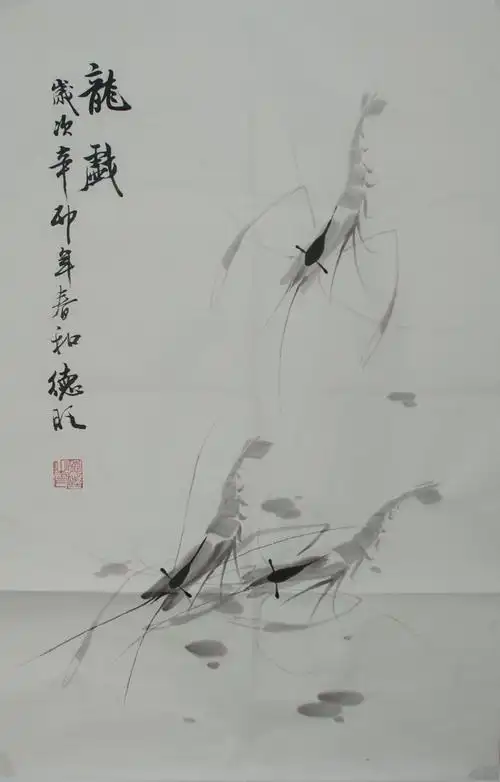 龍戲
歲次辛卯年春和德旺